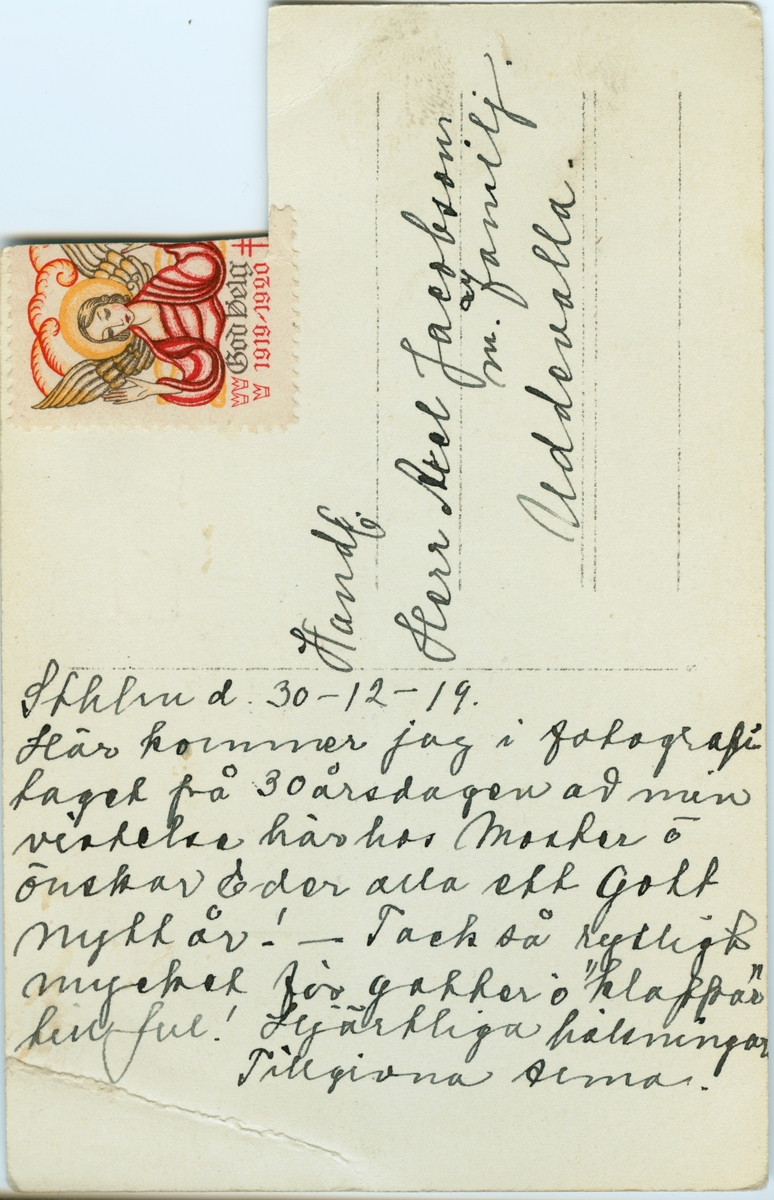 God Helg
1919-1920
Handl.
Herr Axel Jacobson
m. familj.
Uddevalla.
Sthlm d. 30-12-19.
Här kommer jag i fotografi
taget på 30årsdagen av min
vistelse här hos Moster o
önskar Eder alla ett Gott
Nytt år! — Tack så rysligt
mycket för gotter o "klappar"
till jul! Hjärtliga hälsningar
Tillgivna Alma.